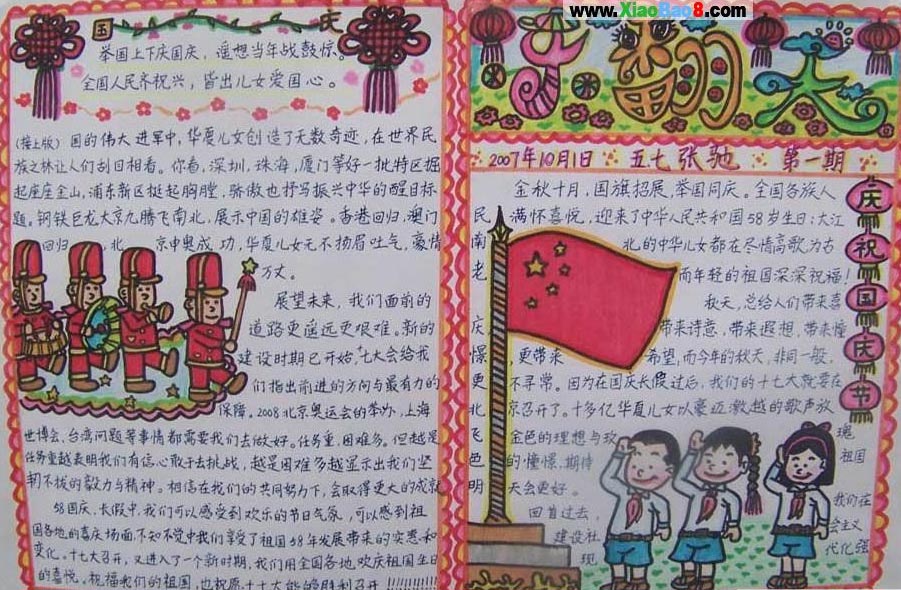 www.XiaoBao8.com
国庆
举国上下庆国庆，遥想当年战鼓惊。
全国人民齐祝兴，皆出儿女爱国心。
(接上版) 国的伟大 进军中，华夏儿女创造了无数奇迹，在世界民
族之林让人们刮目相看。你看，深圳，珠海，厦门等好一批特区掘
起座座金山，浦东新区挺起胸膛，骄傲也抒写振兴中华的醒目标
题。钢铁巨龙大京九腾飞南北，展示中国的雄姿。香港回归，澳门
回归，北京申奥成功，华夏儿女无不扬眉吐气，豪情
万丈。
展望未来，我们面前的
道路更遥远更艰难。新的
建设时期已开始，七大会给我
们指出前进的方向与最有力的
保障。2008北京奥运会的举办，上海
世博会，台湾问题等事情都需要我们去做好。任务重，困难多。但越是
任务重越表明我们有信心敢于去挑战，越是困难多越显示出我们坚
韧不拔的毅力与精神。相信在我们的共同努力下，会取得更大的成就
58国庆，长假中，我们可以感受到欢乐的节日气氛，可以感到祖
国各地的喜庆场面，不知不觉中我们享受了祖国58年发展带来的实惠和
变化。十七大召开，又进入了一个新时期，我们用全国各地欢庆祖国生日
的喜悦，祝福我们的祖国，也祝愿十七大能够胜利召开!!!!!!!!!
翻天
2007年10月1日 五七张驰 第一期
庆祝国庆节
金秋十月，国旗招展，举国同庆。全国各族人
民满怀喜悦，迎来了中华人民共和国58岁生日；大江
南北的中华儿女都在尽情高歌，为古
老而年轻的祖国深深祝福！
秋天，总给人们带来喜
庆带来诗意，带来遐想，带来憧
憬，更带来希望，而今年的秋天，非同一般，
更不寻常。因为在国庆长假过后，我们的十七大就要在
北京召开了。十多亿华夏儿女以豪迈激越的歌声放
飞金色的理想与玫瑰
色的憧憬，期待祖国
明天会更好。
回首过去，我们在
建设社会主义
现代化强